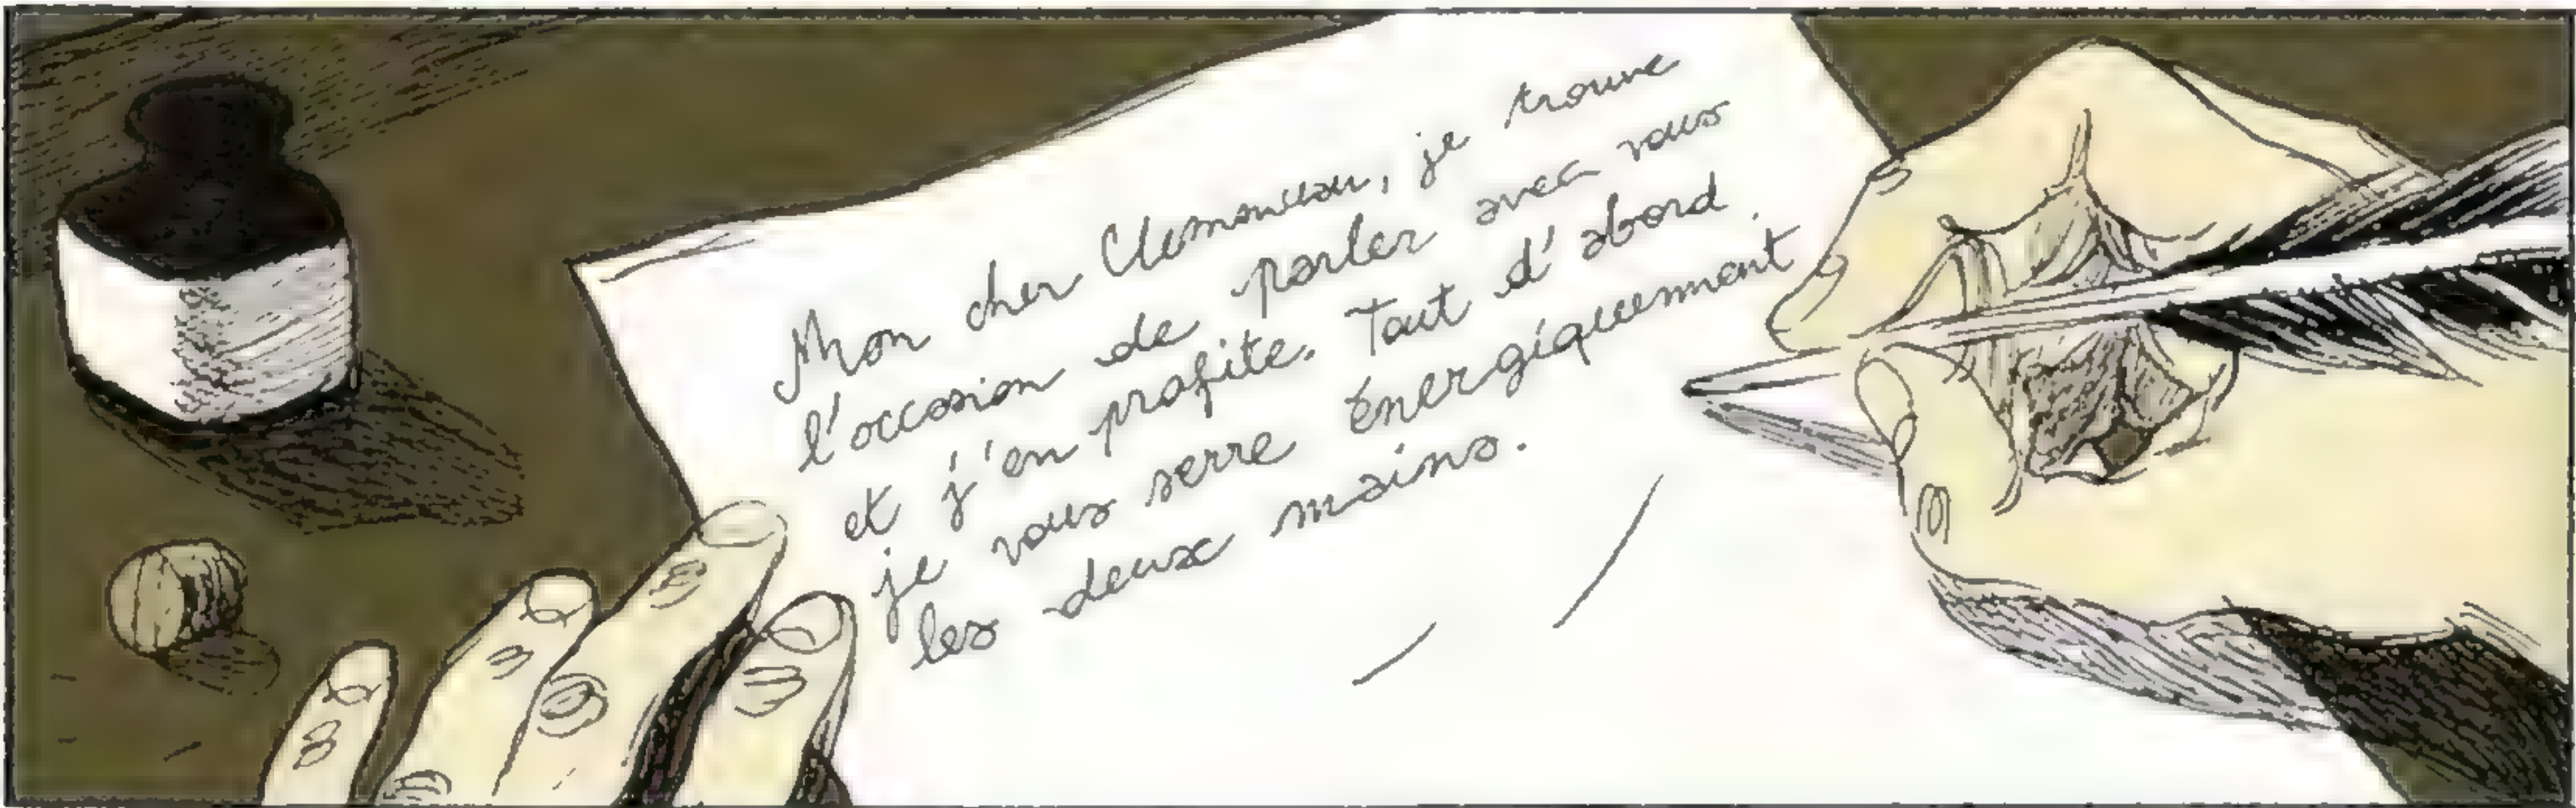 Mon cher Clemenceau, je trouve
l'occasion de parler avec vous
et j'en profite. Tout d'abord
je vous serre énergiquement
les deux mains.